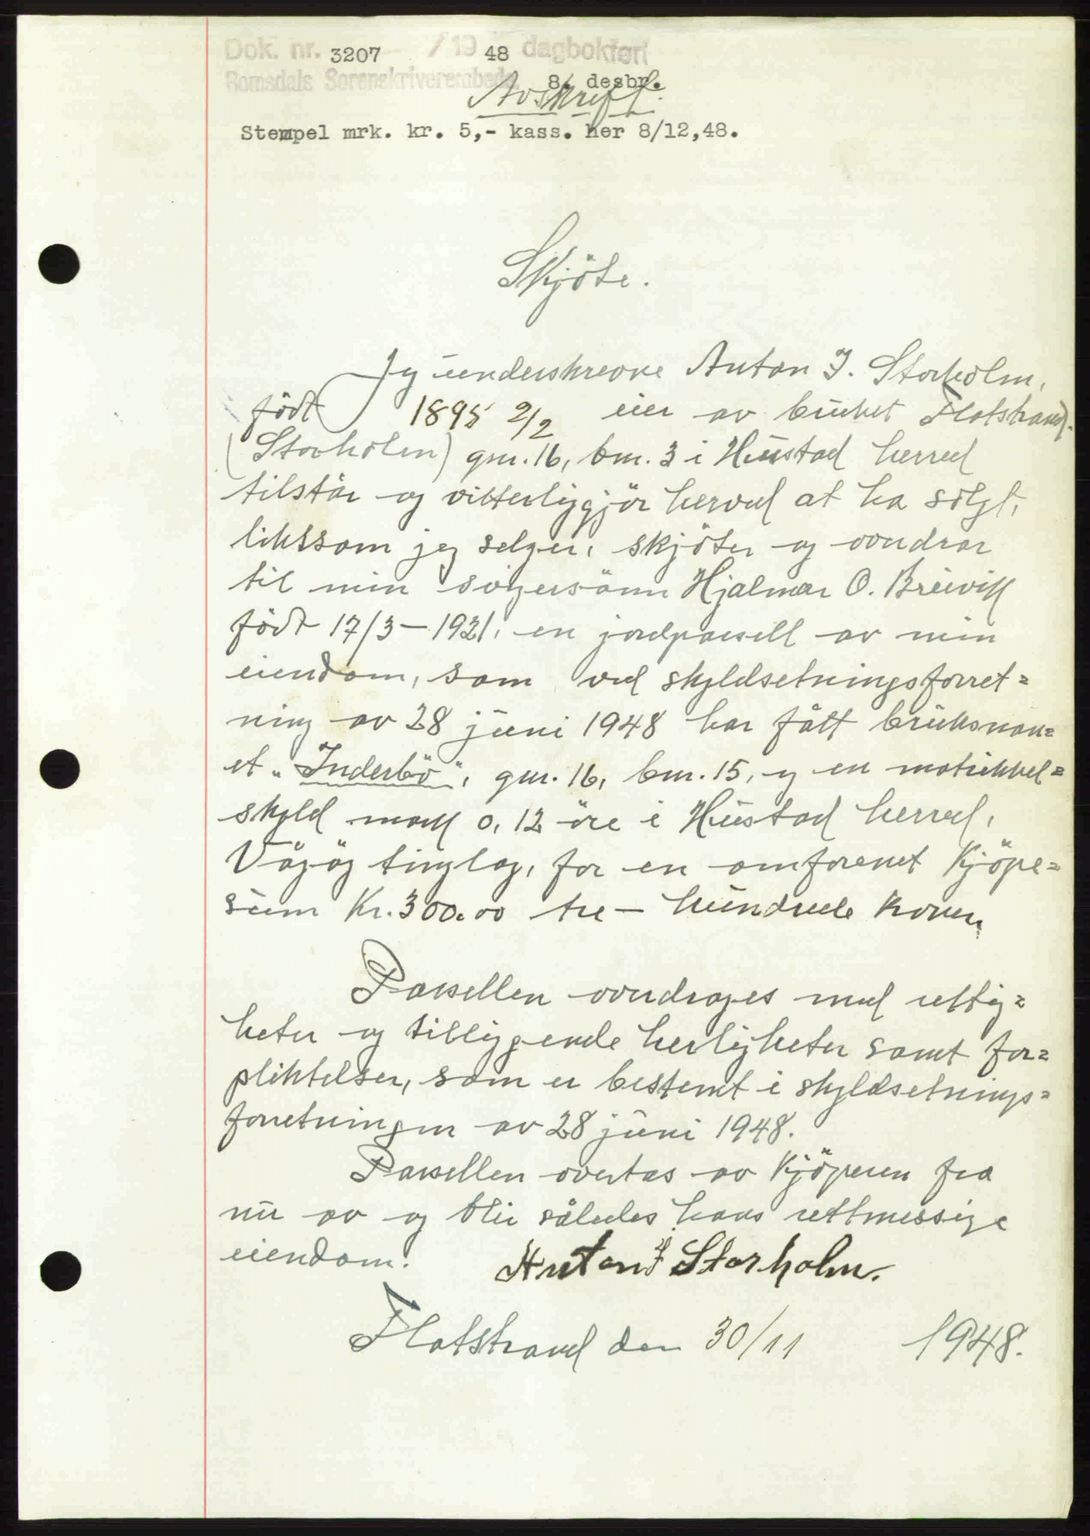 Dok. nr. 3207 / 19 48 dagbokført
Romsdals Sorenskriverembede 8. desbr.
Avskrift.
Stempel mrk. kr. 5,- kass. her 8/12,48.
Skjöte.
Jeg underskrevne Anton J. Storholm,
född 1895 2/2 eier av bruket Flatstrand.
(Storholm) gnr. 16, bnr. 3 i Hustad herred
tilstår og vitterliggjör herved at ha solgt,
likssom jeg selger, skjöter og overdrar
til min svigersönn Hjalmar O. Breivik
född 17/3-1921, en jordparsell av min
eiendom, som ved skyldsetningsforret=
ning av 28 juni 1948 har fått bruksnav=
et "Inderbö", gnr. 16, bnr. 15, og en matrikkel=
skyld mark 0,12 öre i Hustad herred,
Vågöy tinglag, for en omforenet Kjöpe=
sum Kr. 300.00 tre - hundrede kroner,
Parsellen overdrages med rettig=
heter og tilliggende herligheter samt for=
pliktelser, som er bestemt i skyldsetnings=
forretningen av 28 juni 1948.
Parsellen overtas av Kjöperen fra
nu av og blir således hans rettmessige
eiendom.
Anton J Storholm.
Flatstrand den 30/11 1948.